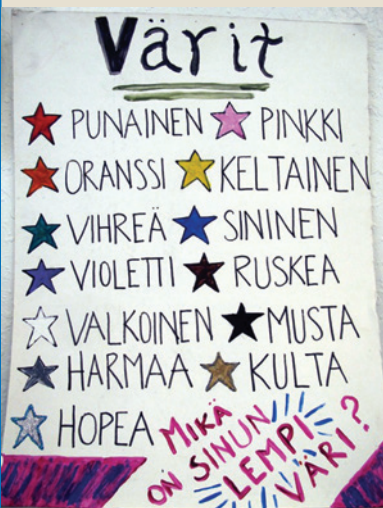 Värit
PUNAINEN PINKKI
ORANSSI KELTAINEN
VIHREÄ SININEN
VIOLETTI RUSKEA
VALKOINEN MUSTA
HARMAA KULTA
HOPEA
MIKÄ
ON SINUN
LEMPI
VÄRI?